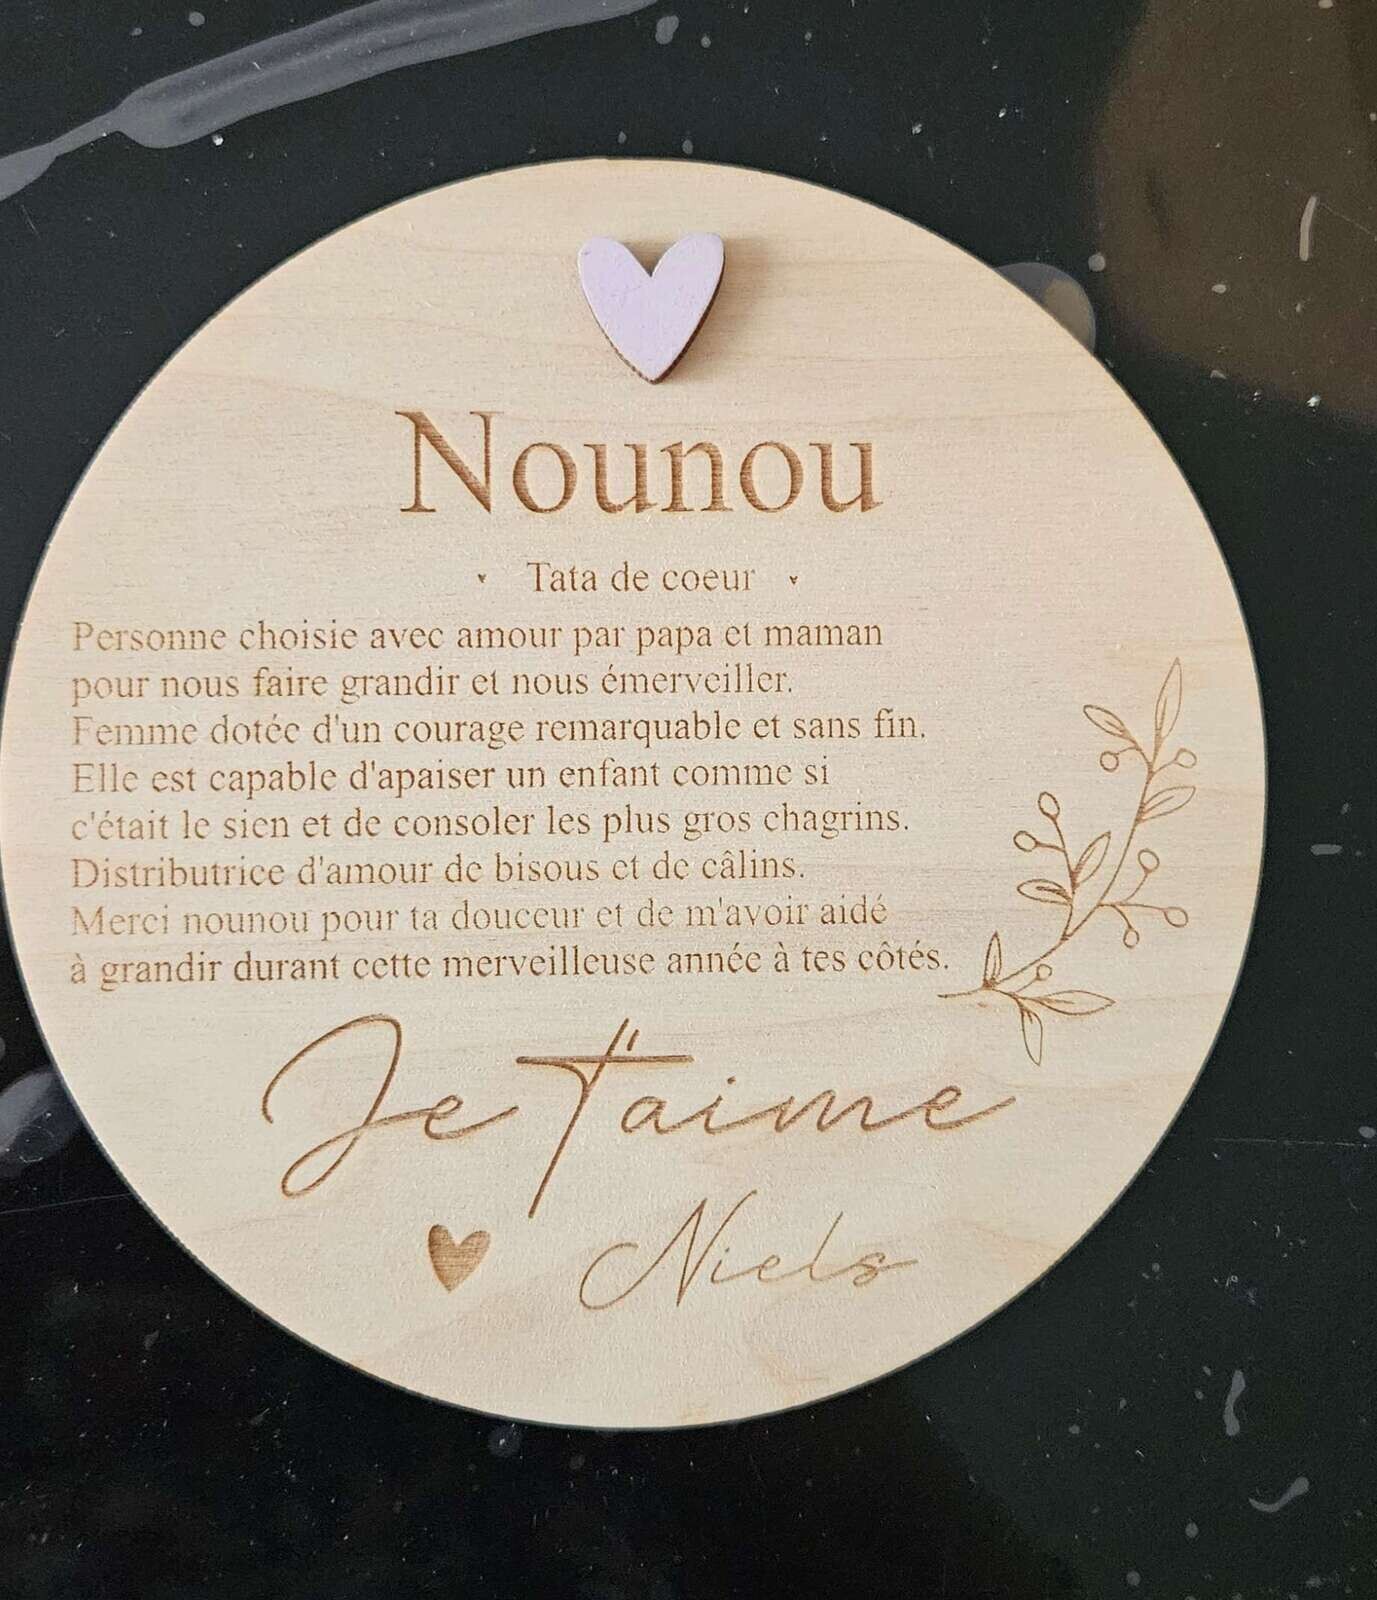 Nounou
Tata de coeur
Personne choisie avec amour par papa et maman
pour nous faire grandir et nous émerveiller.
Femme dotée d'un courage remarquable et sans fin.
Elle est capable d'apaiser un enfant comme si
c'était le sien et de consoler les plus gros chagrins.
Distributrice d'amour de bisous et de câlins.
Merci nounou pour ta douceur et de m'avoir aidé
à grandir durant cette merveilleuse année à tes côtés.
Je t'aime
Niels